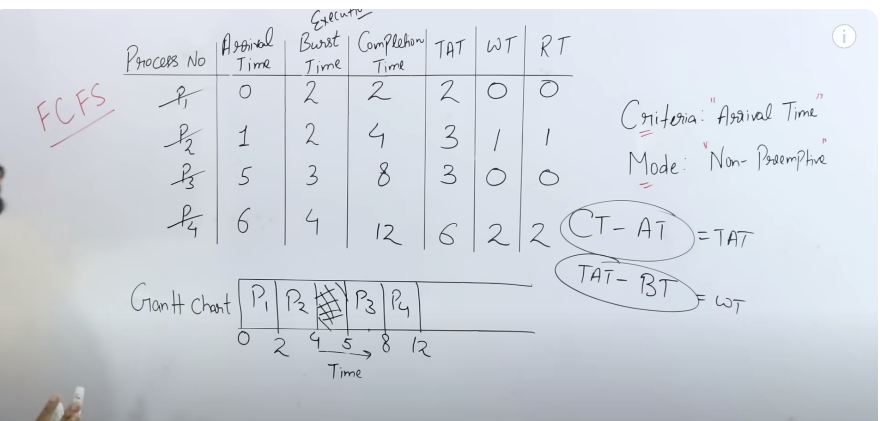 Executi
Process No Arrival Time Burst Time Completion Time TAT WT RT
FCFS
P1 0 2 2 2 0 0
P2 1 2 4 3 1 1
P3 5 3 8 3 0 0
P4 6 4 12 6 2 2
Criteria: "Arrival Time"
Mode: "Non-Preemptive"
CT - AT = TAT
TAT - BT = WT
Gantt Chart P1 P2 P3 P4
0 2 4 5 8 12
Time
i